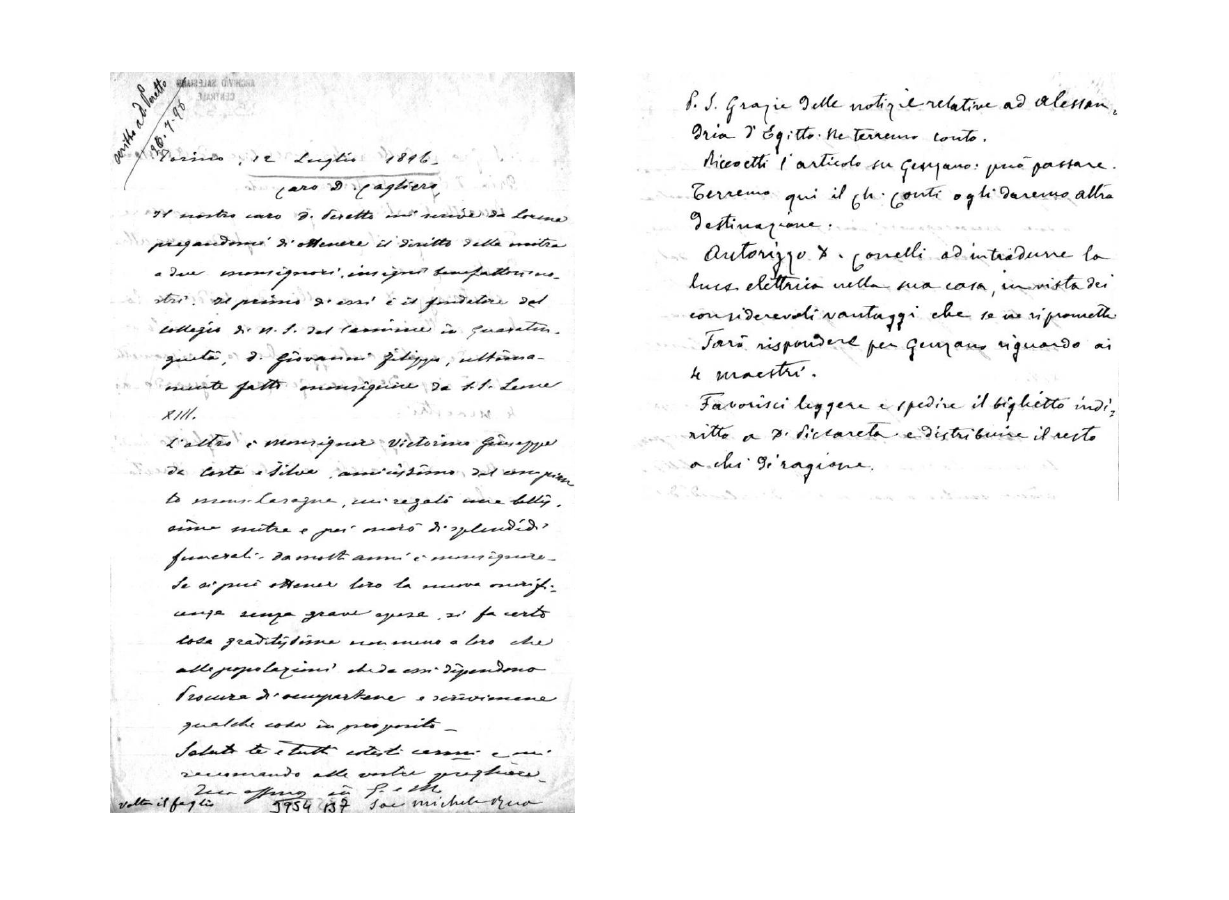 ARCHIVIO SALESIANO
CENTRALE
scritto a d. Peretto
26.7.96
Torino, 12 Luglio 1896.
Caro D. Cagliero,
Il nostro caro D. Peretto mi scrive da Lorena
pregandomi di ottenere il diritto della mitra
a due monsignori, insigni benefattori no-
stri. Il primo di essi è il fondatore del
collegio di N. S. del Carmine in Guaratin-
guetà, D. Giovanni Filippo, ultima-
mente fatto monsignore da S.S. Leone
XIII.
L'altro è monsignor Vittorino Giuseppe
da Costa e Silva, amicissimo del compian
to mons. Lasagna, cui regalò una bellis.
sima mitra e poi onorò di splendidi
funerali. Da molti anni è monsignore.
Se si può ottener loro la nuova onorifi-
cenza senza grave spesa, si fa certo
cosa graditissima non meno a loro che
alle popolazioni che da essi dipendono
Procura di occupartene e scrivimene
qualche cosa in proposito _
Saluto te e tutti cotesti and mi
raccomando alle vostre preghiere.
Tuo affmo in G. e M.
volta il foglio 3954 B7 Sac Michele Rua
P. S. Grazie delle notizie relative ad Alessan,
dria d'Egitto. Ne terremo conto.
Ricevetti l'articolo su Genzano: può passare.
Terremo qui il Ch. Conti o gli daremo altra
destinazione.
Autorizzo D. Conelli ad introdurre la
luce elettrica nella sua casa, in vista dei
considerevoli vantaggi che se ne ripromette
Farò rispondere per Genzano riguardo ai
4 maestri.
Favorisci leggere e spedire il biglietto indi,
ritto a D. Piccareta e distribuire il resto
a chi di ragione.